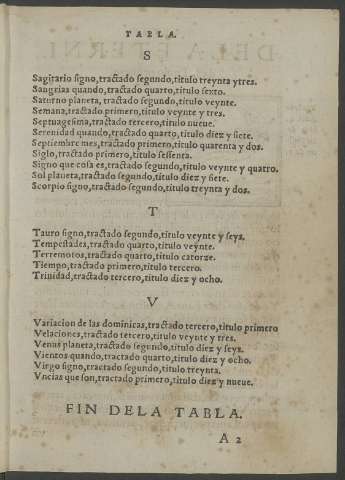 TABLA.
S
Sagitario signo, tractado segundo, titulo treynta ytres.
Sangrias quando, tractado quarto, titulo sexto.
Saturno planeta, tractado segundo, titulo veynte.
Semana, tractado primero, titulo veynte y tres.
Septuagesima, tractado tercero, titulo nueue.
Serenidad quando, tractado quarto, titulo diez y siete.
Septiembre mes, tractado primero, titulo quarenta y dos.
Siglo, tractado primero, titulo sessenta.
Signo que cosa es, tractado segundo, titulo veynte y quatro.
Sol planeta, tractado segundo, titulo diez y siete.
Scorpio signo, tractado segundo, titulo treynta y dos.
T
Tauro signo, tractado segundo, titulo veynte y seys.
Tempestades, tractado quarto, titulo veynte.
Terremotos, tractado quarto, titulo catorze.
Tiempo, tractado primero, titulo tercero.
Trinidad, tractado tercero, titulo diez y ocho.
V
Variacion de las dominicas, tractado tercero, titulo primero
Velaciones, tractado tercero, titulo veynte y tres.
Venus planeta, tractado segundo, titulo diez y seys.
Vientos quando, tractado quarto, titulo diez y ocho.
Virgo signo, tractado segundo, titulo treynta.
Vncias que son, tractado primero, titulo diez y nueue.
FIN DELA TABLA.
A 2